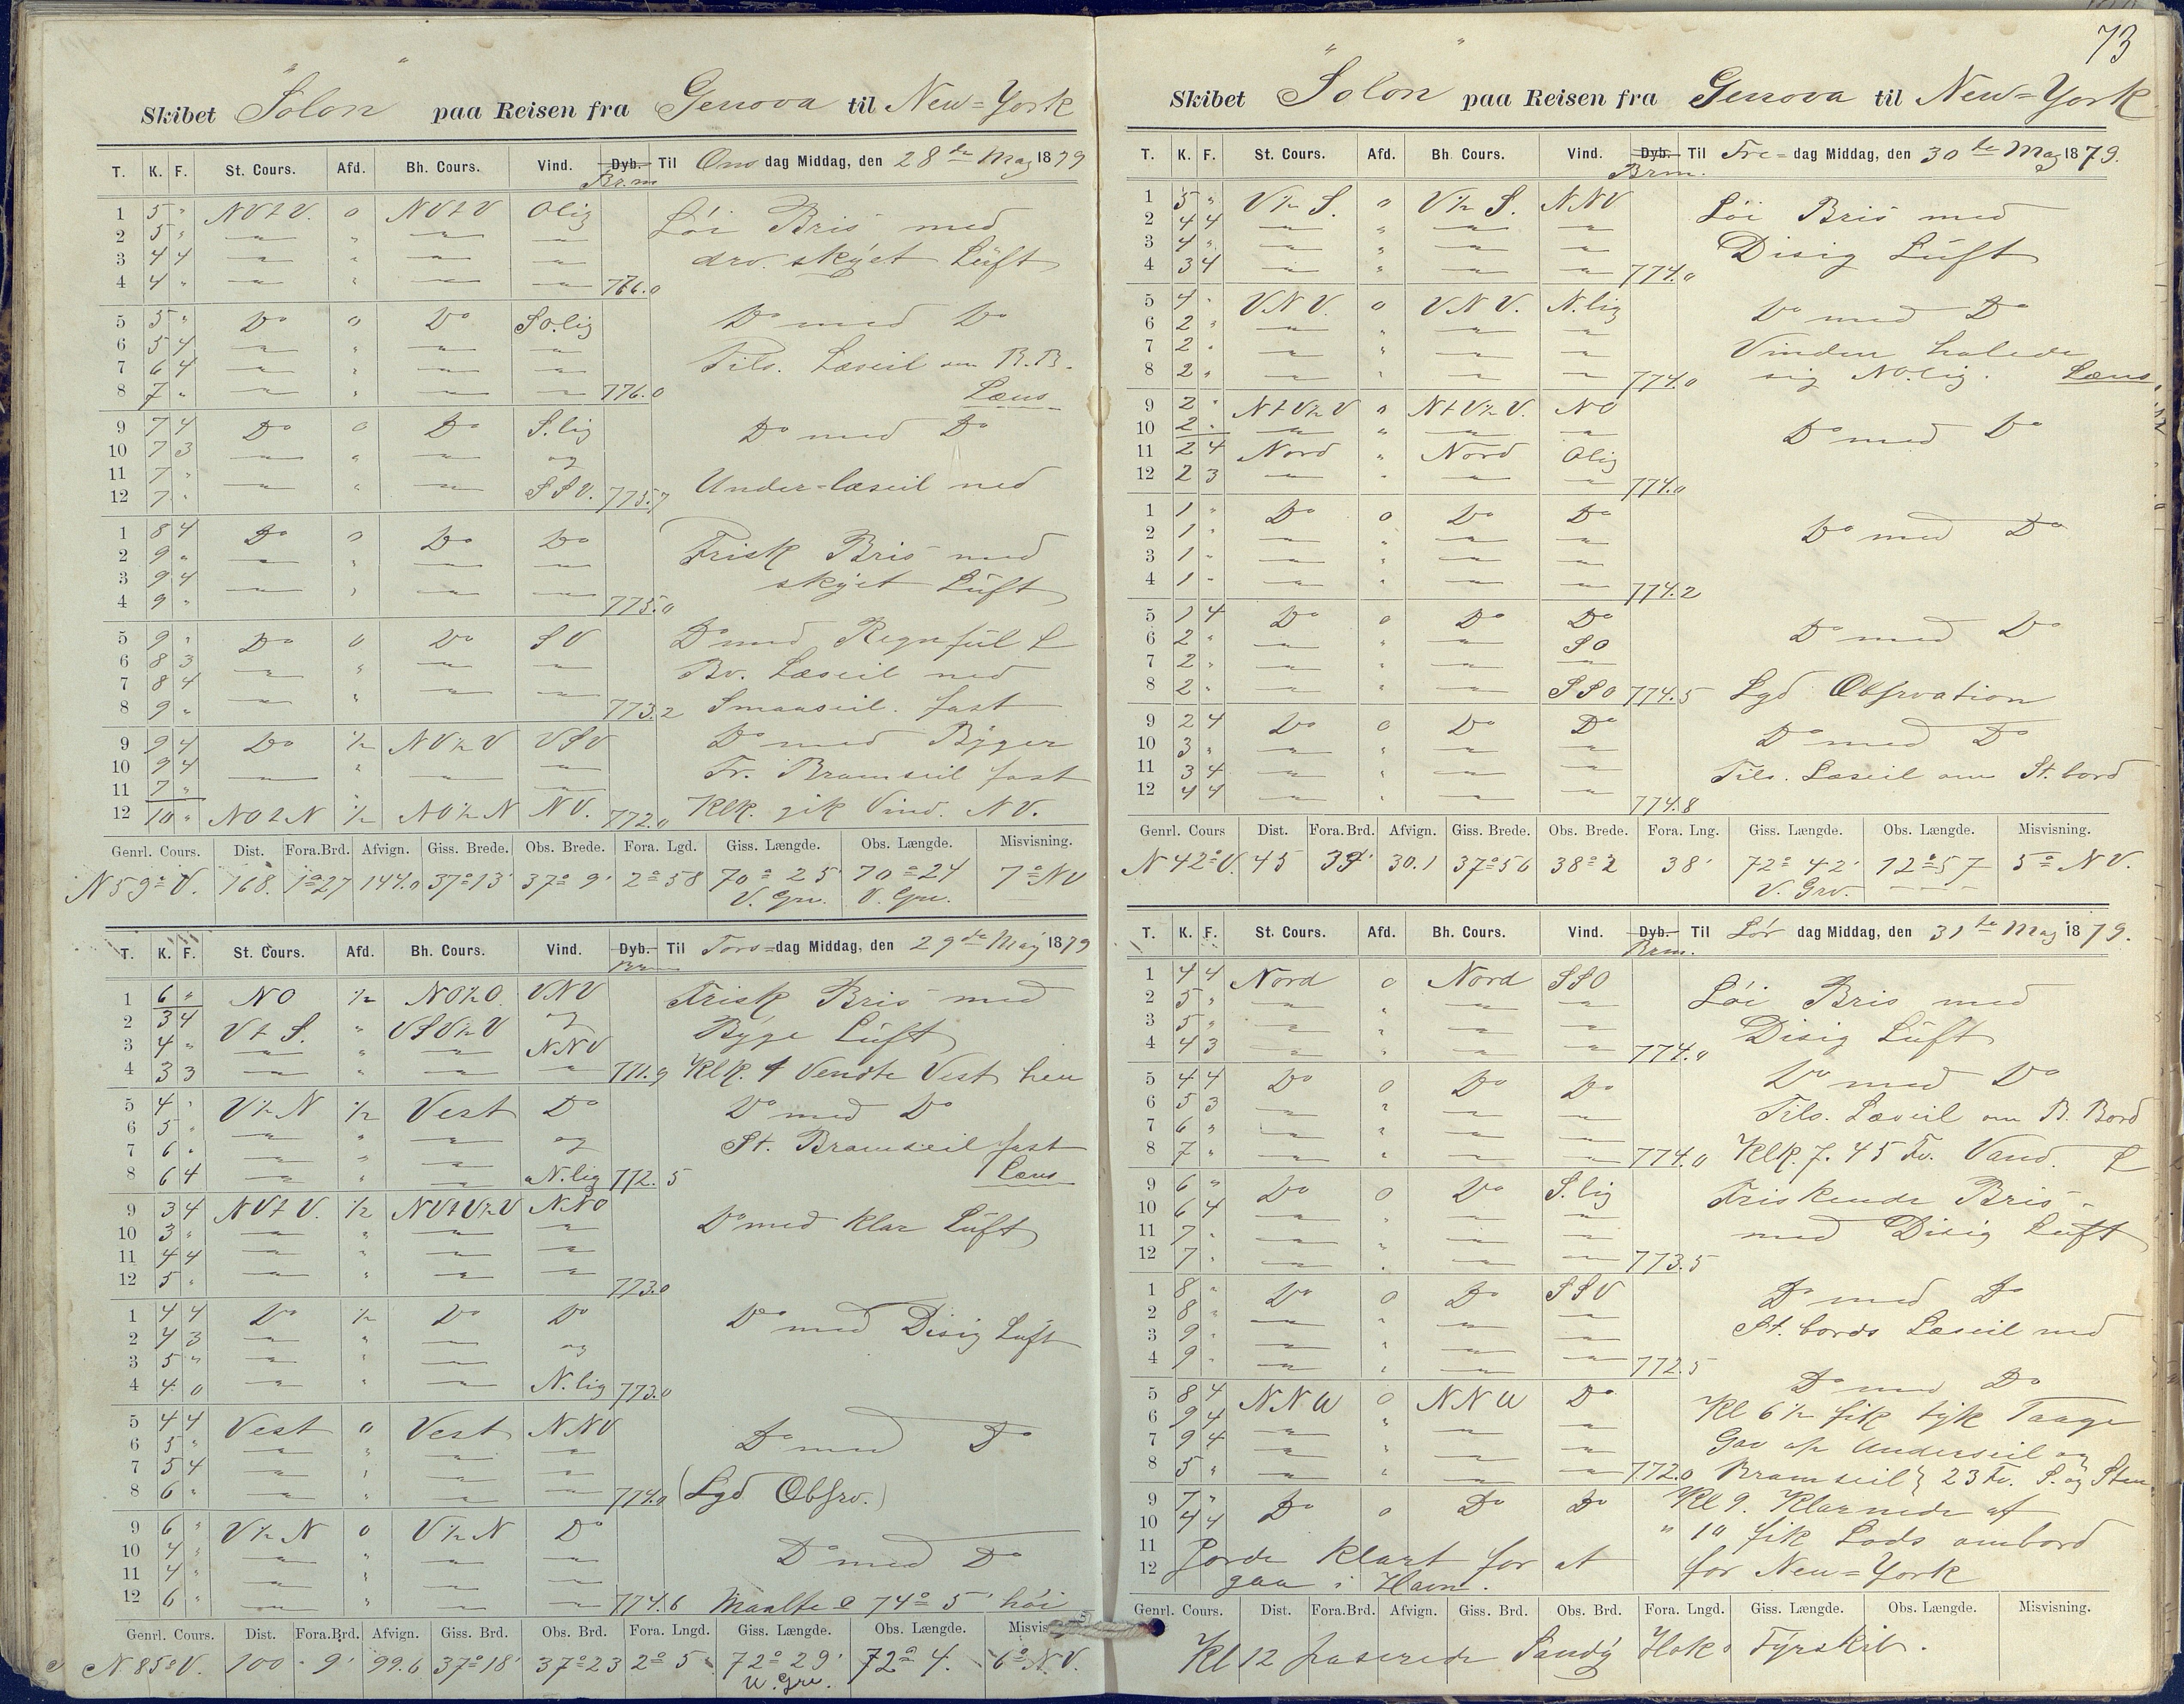 73
Skibet "Solon" paa Reisen fra Genova til New=York
T. K. F. St. Cours. Afd. Bh. Cours. Vind. Dyb. Til Ons dag Middag, den 28de May 1879
Brm
1 5 " NVtV. 0 NVtV Olig Løi Bris med
2 5 "
3 4 4 drv. skyet Luft
4 4 " 776.0
5 5 " Do 0 Do SO.lig Do med Do
6 5 4
7 6 4 Tils. Læseil om B.B.
8 7 " 776.0 Læns
9 7 4 Do 0 Do S.lig Do med Do
10 7 3 og
11 7 " Under-læseil ned
12 7 " SSV. 775.7
1 8 4 Do 0 Do Do Frisk Bris med
2 9 "
3 9 4 skyet Luft
4 9 " 775.0
5 9 " Do 0 Do SV Do med Regnful L
6 8 3 Bv. Læseil ned
7 8 4
8 9 " 773.2 Smaaseil. fast
9 9 4 Do ½ NV½V VSV Do med Byger
10 9 4 Fr. Bramseil fast
11 7 "
12 10 " NOtN ½ NO½N NV. 772.0 Klk. gik Vind. NV.
Genrl. Cours. Dist. Fora.Brd. Afvign. Giss. Brede. Obs. Brede. Fora. Lgd. Giss. Længde. Obs. Længde. Misvisning.
N59°V. 168. 1°27 144.0 37°13' 37°9' 2°58 70°25' 70°24 7°NV
V. Grv. V. Grv.
T. K. F. St. Cours. Afd. Bh. Cours. Vind. Dyb. Til Tors=dag Middag, den 29de May 1879
1 6 " NO ½ NO½O. VNV Frisk Bris med
2 3 4 VtS. " VSV½V og Byge Luft
3 4 " NNV
4 3 3 771.9 Klk. 1 Vendte Vest hen
5 4 " V½N ½ Vest Do Do med Do
6 5 " og St. Bramseil fast
7 6 "
8 6 4 N.lig 772.5 Læns
9 3 4 NVtV. ½ NVtV½V NNO Do med klar Luft
10 3 "
11 4 4
12 5 " 773.0
1 4 4 Do ½ Do Do Do med Disig Luft
2 4 3 og
3 5 "
4 4 0 N.lig 773.0
5 4 4 Vest 0 Vest NNV Do med Do
6 5 "
7 5 4
8 6 " 774.0 (Lgd Obsrv.)
9 6 " V½N 0 V½N Do
10 4 " Do med Do
11 4 "
12 6 " 774.6 Maalte 74°5' høi
Genrl. Cours. Dist. Fora.Brd. Afvign. Giss. Brd. Obs. Brd. Fora. Lngd. Giss. Længde. Obs. Længde. Misvis
N.85°V. 100 9' 99.6 37°18' 37°23 2°5' 72°29' 72°4. 6°N.V.
V. Grv.
Skibet "Solon" paa Reisen fra Genova til New=York
T. K. F. St. Cours. Afd. Bh. Cours. Vind. Dyb. Til Fre=dag Middag, den 30te May 1879.
Brm.
1 5 " V½S. 0 V½S. NNV Løi Bris med
2 4 4
3 4 " Disig Luft
4 3 4 774.0
5 4 " VNV. 0 VNV. N.lig Do med Do
6 2 "
7 2 " Vinden halede
8 2 " 774.0 sig NO.lig. Læns
9 2 " NtV½V " NtV½V. NO Do med Do
10 2 "
11 2 4 Nord " Nord Olig
12 2 3 774.0
1 1 " Do 0 Do Do Do med Do
2 1 "
3 1 "
4 1 " 774.2
5 1 4 Do 0 Do Do Do med Do
6 2 " SO
7 2 "
8 2 " SSO 774.5 Lgd Obsrvation
9 2 4 Do 0 Do Do Do med Do
10 3 "
11 3 4 Tils. Læseil om St. bord
12 4 4 774.8
Genrl. Cours Dist. Fora.Brd. Afvign. Giss. Brede. Obs. Brede. Fora. Lng. Giss. Længde. Obs. Længde. Misvisning.
N42°V. 45 34' 30.1 37°56 38°2 38' 72°42' 72°57 5°NV.
V. Grv.
T. K. F. St. Cours. Afd. Bh. Cours. Vind. Dyb. Til Lør dag Middag, den 31te May 1879.
Brm.
1 4 4 Nord 0 Nord SSO Løi Bris med
2 5 "
3 5 " Disig Luft
4 4 3 774.0
5 4 4 Do 0 Do Do Do med Do
6 5 3 Tils. Læseil om B. Bord
7 6 "
8 7 " 774.0 Klk. 7.45 Fv. Vand. L
9 6 " Do 0 Do S.lig Friskende Bris
10 6 4
11 7 " med Disig Luft
12 7 " 773.5
1 8 " Do 0 Do SSV Do med Do
2 8 " St. bords Læseil ned
3 9 "
4 9 " 772.5
5 8 4 NNW 0 NNW Do Do med Do
6 9 4 Kl 6½ fik tyk Taage
7 9 4 Gav op Underseil og
8 5 " 772.0 Bramseil 23 Fv. S. og Sten
9 7 " Do 0 Do Do Kl 9. Klarnede af
10 4 4 " 10 fik Lods ombord
11 Gorde klart for at for New=York
12 gaa i Havn.
Genrl. Cours. Dist. Fora.Brd. Afvign. Giss. Brd. Obs. Brd. Fora. Lngd. Giss. Længde. Obs. Længde. Misvisning.
Kl 12 paserede Sandy Hoks Fyrskib.